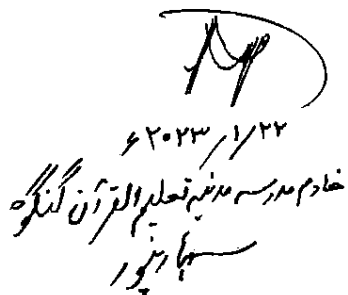 ۲۲/۱/۲۰۲۳ء
خادم مدرسہ مدنیہ تعلیم القرآن گنگوہ
سہارنپور